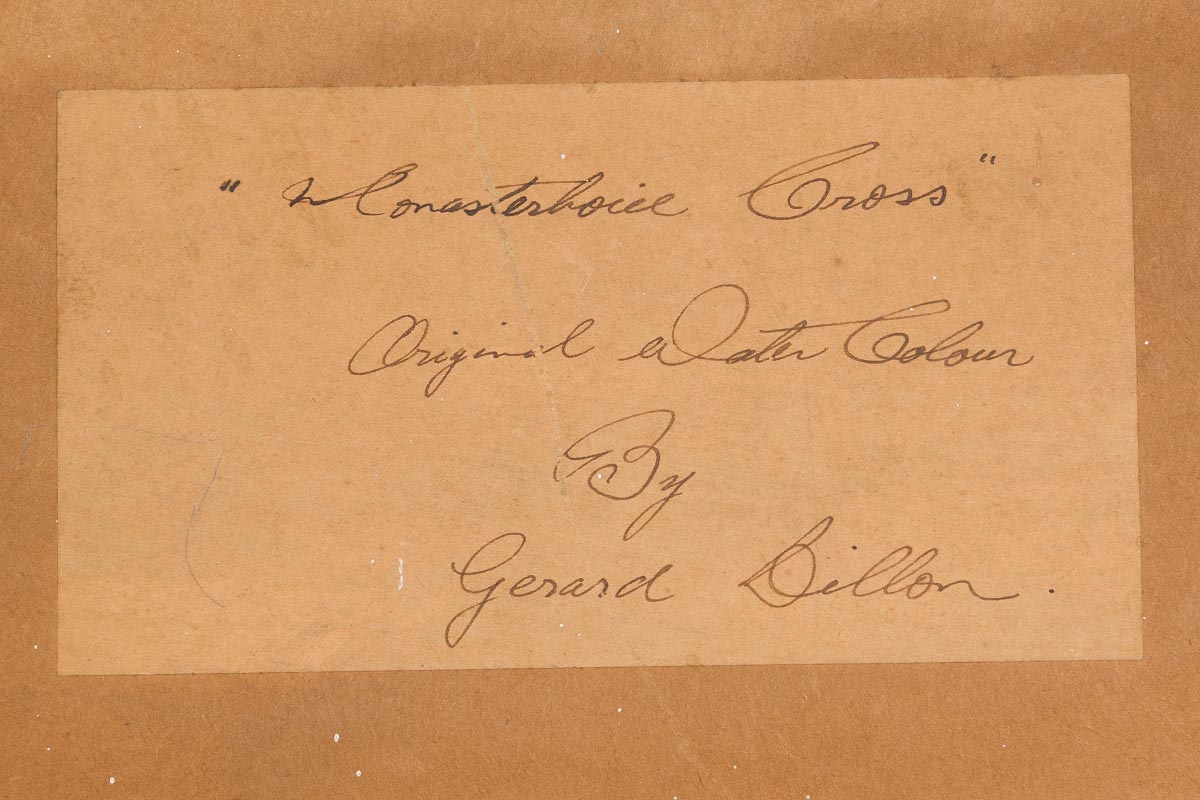 "Monasterboice Cross"
Original Water Colour
By
Gerard Dillon.